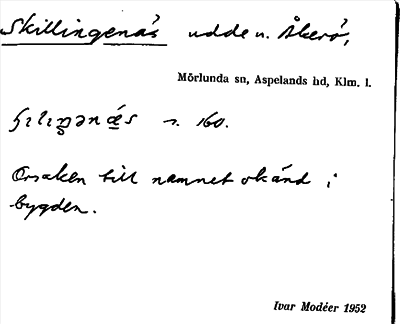 Skillingenäs udde u. Åkerö,
Mörlunda sn, Aspelands hd, Klm. l.
s. 160.
Orsaken till namnet okänd i
bygden.
Ivar Modéer 1952